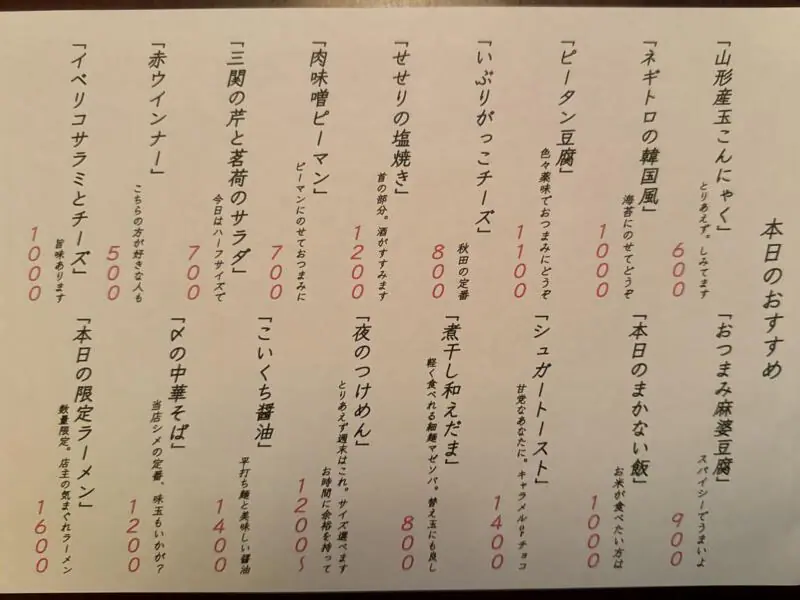 本日のおすすめ
「山形産玉こんにゃく」
とりあえず。しみてます
600
「ネギトロの韓国風」
海苔にのせてどうぞ
1000
「ピータン豆腐」
色々薬味でおつまみにどうぞ
1100
「いぶりがっこチーズ」
秋田の定番
800
「せせりの塩焼き」
首の部分。酒がすすみます
1200
「肉味噌ピーマン」
ピーマンにのせておつまみに
700
「三関の芹と茗荷のサラダ」
今日はハーフサイズで
700
「赤ウインナー」
こちらの方が好きな人も
500
「イベリコサラミとチーズ」
旨味あります
1000
「おつまみ麻婆豆腐」
スパイシーでうまいよ
900
「本日のまかない飯」
お米が食べたい方は
1000
「シュガートースト」
甘党なあなたに。キャラメルorチョコ
1400
「煮干し和えだま」
軽く食べれる細麺マゼソバ。替え玉にも良し
800
「夜のつけめん」
とりあえず週末はこれ。サイズ選べます
お時間に余裕を持って
1200〜
「こいくち醤油」
平打ち麺と美味しい醤油
1400
「〆の中華そば」
当店シメの定番、味玉もいかが?
1200
「本日の限定ラーメン」
数量限定。店主の気まぐれラーメン
1600